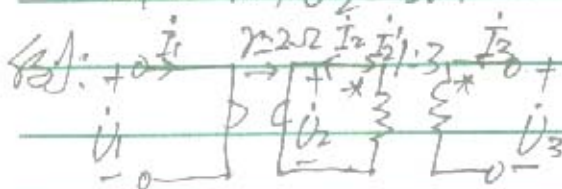 例: + İ₁ r=2Ω İ₂ İ₂' 1:3 İ₃ +
U̇₁ + * U̇₂ * U̇₃
- - -